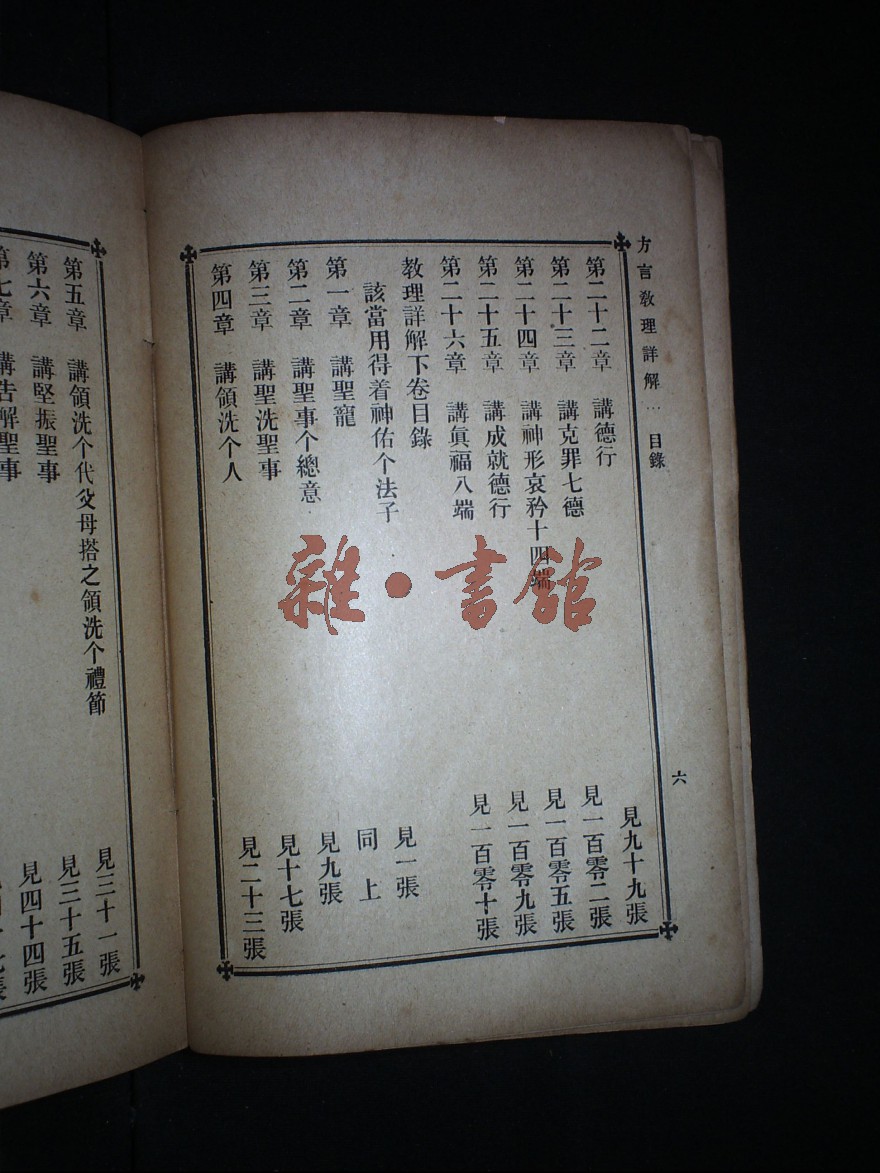 方言教理詳解 … 目錄 六
第二十二章 講德行 見九十九張
第二十三章 講克罪七德 見一百零二張
第二十四章 講神形哀矜十四端 見一百零五張
第二十五章 講成就德行 見一百零九張
第二十六章 講眞福八端 見一百零十張
教理詳解下卷目錄
該當用得着神佑个法子 見一張
第一章 講聖寵 同上
第二章 講聖事个總意 見九張
第三章 講聖洗聖事 見十七張
第四章 講領洗个人 見二十三張
第五章 講領洗个代父母搭之領洗个禮節 見三十一張
第六章 講堅振聖事 見三十五張
第七章 講告解聖事 見四十四張
雜·書館